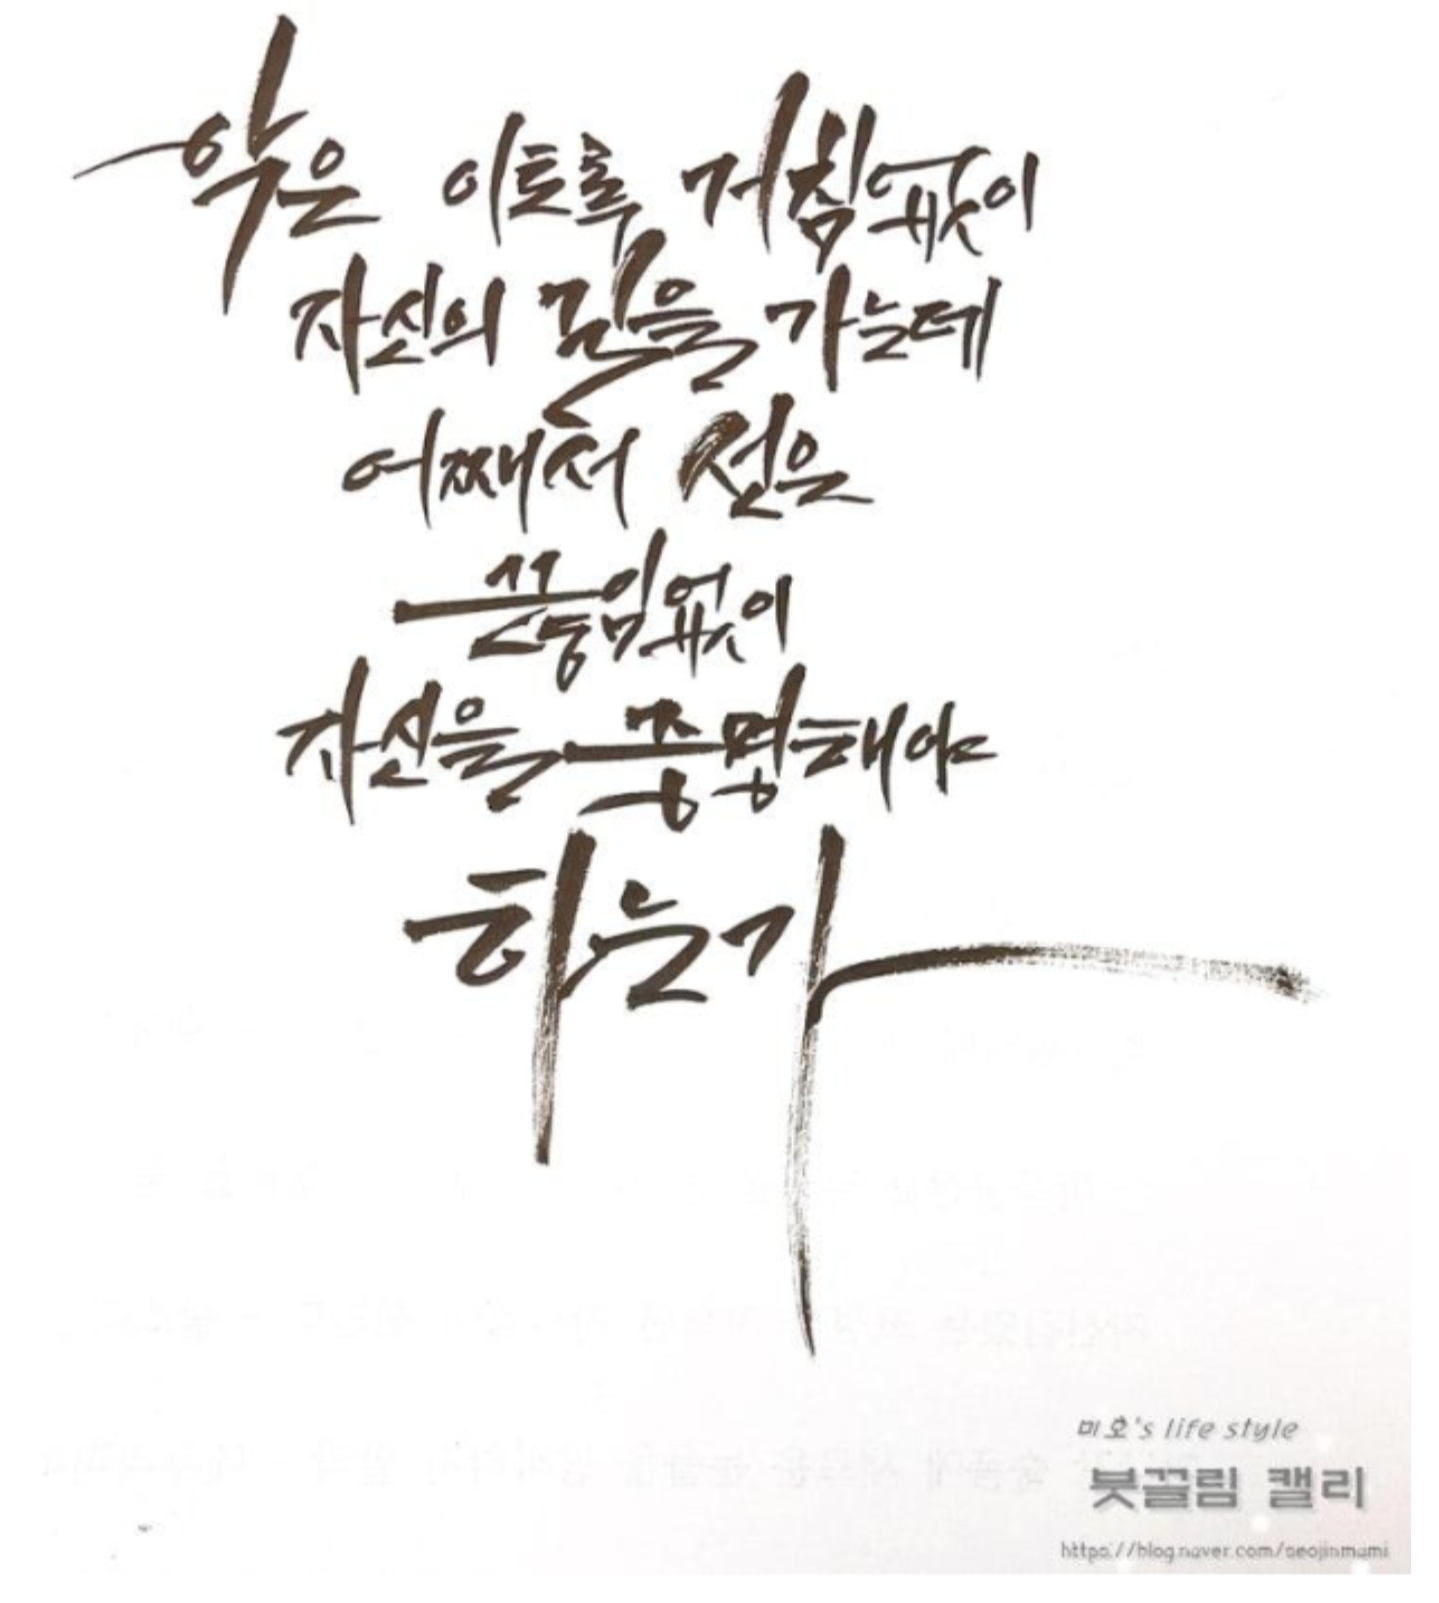 악은 이토록 거침없이
자신의 길을 가는데
어째서 선은
끊임없이
자신을 증명해야
하는가
미호's life style
붓끌림 캘리
https://blog.naver.com/seojinmami